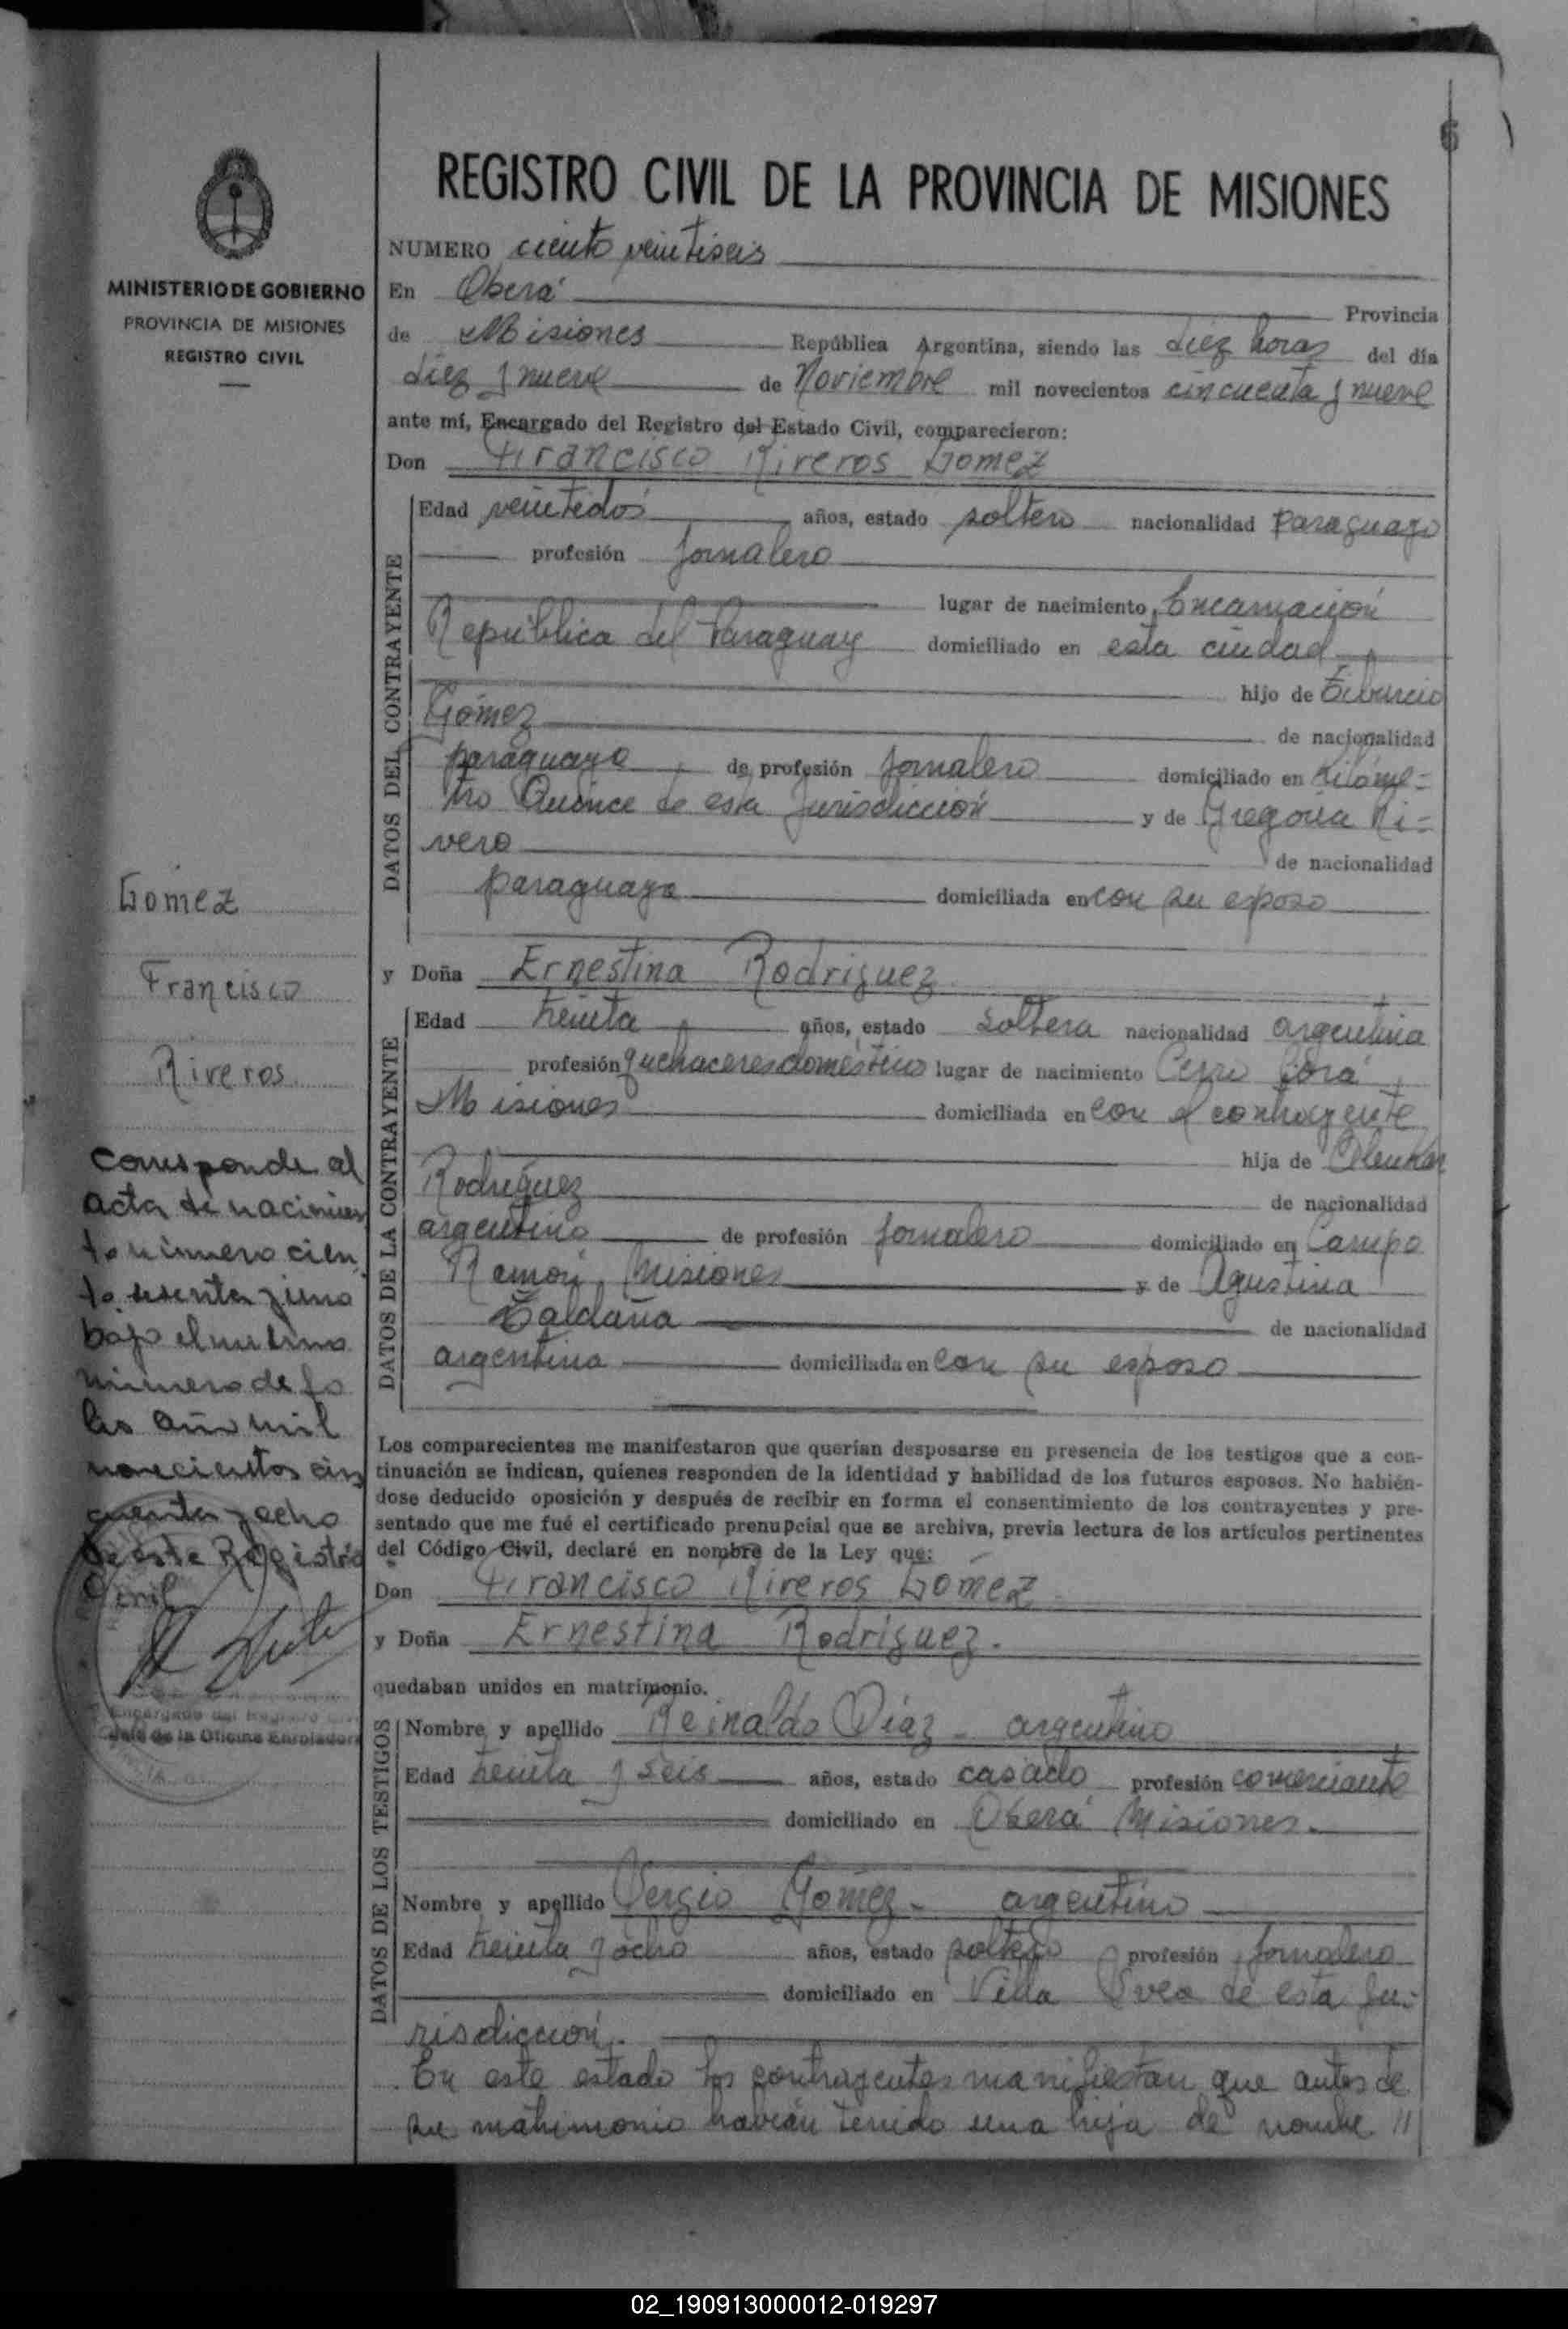 6
REGISTRO CIVIL DE LA PROVINCIA DE MISIONES
MINISTERIO DE GOBIERNO
PROVINCIA DE MISIONES
REGISTRO CIVIL
NUMERO ciento veintiseis
En Oberá Provincia
de Misiones República Argentina, siendo las diez horas del día
diez y nueve de Noviembre mil novecientos cincuenta y nueve
ante mí, Encargado del Registro del Estado Civil, comparecieron:
Don Francisco Riveros Gomez
DATOS DEL CONTRAYENTE
Edad veintedos años, estado soltero nacionalidad paraguayo
profesión jornalero
lugar de nacimiento Encarnación
República del Paraguay domiciliado en esta ciudad
hijo de Tiburcio
Gómez de nacionalidad
paraguaya de profesión jornalero domiciliado en Kilóme=
tro Quince de esta Jurisdicción y de Gregoria Ri=
vero de nacionalidad
paraguaya domiciliada en con su esposo
y Doña Ernestina Rodriguez
DATOS DE LA CONTRAYENTE
Edad treinta años, estado soltera nacionalidad argentina
profesión quehaceres domésticos lugar de nacimiento Cerro Corá
Misiones domiciliada en con el contrayente
hija de
Rodríguez de nacionalidad
argentino de profesión jornalero domiciliado en Campo
Ramón, Misiones y de Agustina
Saldaña de nacionalidad
argentina domiciliada en con su esposo
Los comparecientes me manifestaron que querían desposarse en presencia de los testigos que a con-
tinuación se indican, quienes responden de la identidad y habilidad de los futuros esposos. No habién-
dose deducido oposición y después de recibir en forma el consentimiento de los contrayentes y pre-
sentado que me fué el certificado prenupcial que se archiva, previa lectura de los artículos pertinentes
del Código Civil, declaré en nombre de la Ley que:
Don Francisco Riveros Gomez
y Doña Ernestina Rodriguez.
quedaban unidos en matrimonio.
DATOS DE LOS TESTIGOS
Nombre y apellido Reinaldo Díaz - argentino
Edad treinta y seis años, estado casado profesión comerciante
domiciliado en Oberá Misiones.
Nombre y apellido Sergio Gómez - argentino
Edad treinta y ocho años, estado soltero profesión jornalero
domiciliado en Villa Svea de esta Ju-
risdicción.
En este estado los contrayentes manifiestan que antes de
su matrimonio habían tenido una hija de nombre //
Gomez
Francisco
Riveros
Corresponde al
acta de nacimien
to número cien
to sesenta y uno
bajo el mismo
número de fo
lio año mil
novecientos cin
cuenta y ocho
de este Registro
Civil
Encargado del Registro Civil
Jefe de la Oficina Enroladora
02_190913000012-019297